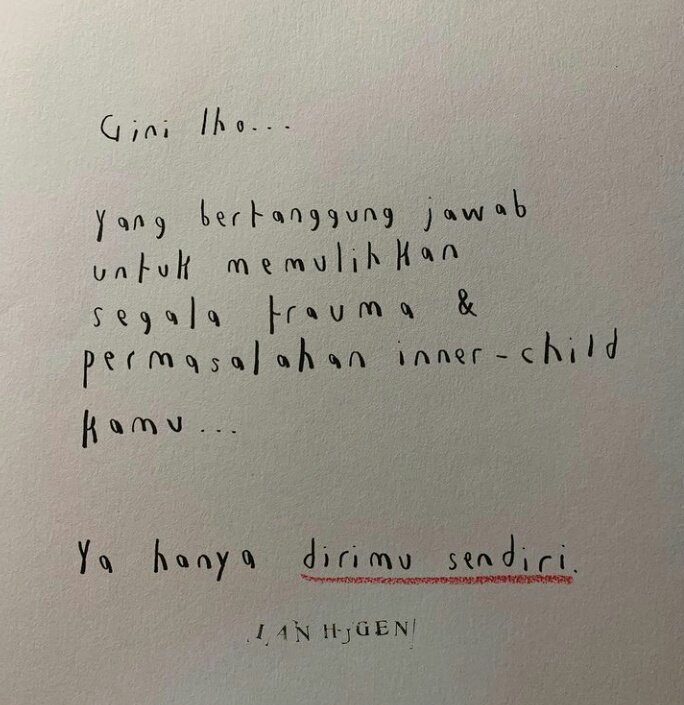 Gini lho...
yang bertanggung jawab
untuk memulihkan
segala trauma &
permasalahan inner-child
kamu...
Ya hanya dirimu sendiri.
IAN HJGEN